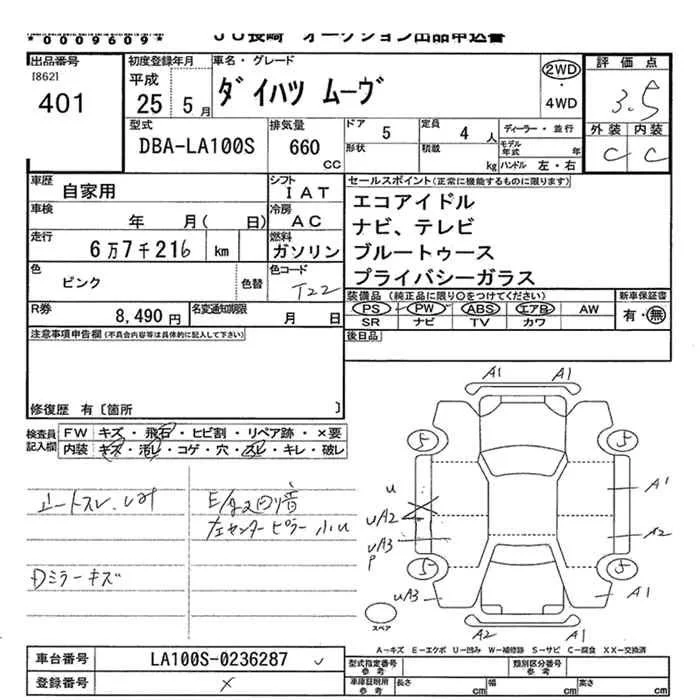 *0009609* JU長崎 オークション出品申込書
出品番号 初度登録年月 車名・グレード 評価点
[862] 平成 ダイハツ ムーヴ 2WD 3.5
401 25 5月 ・ 4WD 外装 内装
型式 排気量 ドア 5 定員 4 人 ディーラー・並行 C C
DBA-LA100S 660 CC 形状 積載 kg モデル年式 年
ハンドル 左・右
車歴 自家用 シフト IAT セールスポイント(正常に機能するものに限ります)
車検 年 月( 日) 冷房 AC エコアイドル
走行 6万7千216 km 燃料 ガソリン ナビ、テレビ
ブルートゥース
色 ピンク 色替 色コード T22 プライバシーガラス
R券 8,490円 名変通知期限 月 日 装備品 (純正品に限り○をつけてください) 新車保証書
PS PW ABS エアB AW 有・無
SR ナビ TV カワ
注意事項申告欄(不具合内容等は具体的に記入して下さい) 後日品
修復歴 有〔箇所 〕
検査員記入欄 FW キズ・飛石・ヒビ割・リペア跡・×要
内装 キズ・汚レ・コゲ・穴・スレ・キレ・破レ
シートスレ.
E/g2回り音
左センターピラー小U
Dミラーキズ
A1 A1
5 5
U A1
UA2
UA3 A2
P
5 5
UA3 A1
スペア A2 A1
A-キズ E-エクボ U-凹み W-補修跡 S-サビ C-腐食 XX-交換済
車台番号 LA100S-0236287 型式指定番号 参考 類別区分番号 参考
登録番号 × 車庫証明用 参考 長さ cm 幅 cm 高さ cm